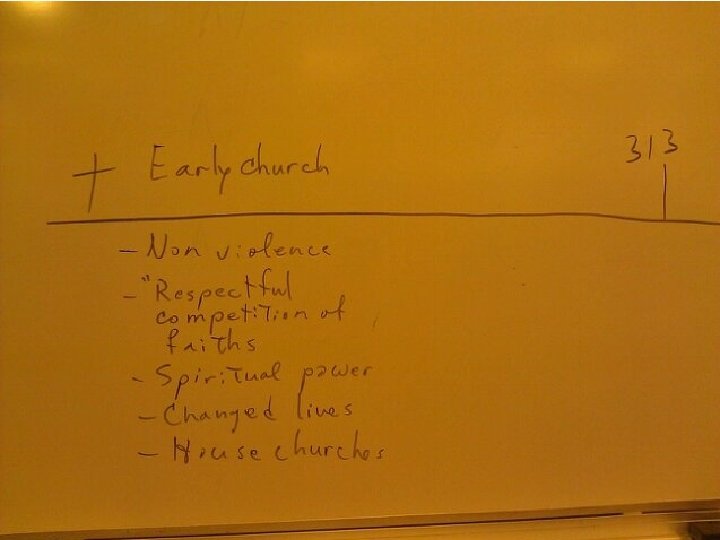 Early church
313
- Non violence
- "Respectful
competition of
faiths
- Spiritual power
- Changed lives
- House churches